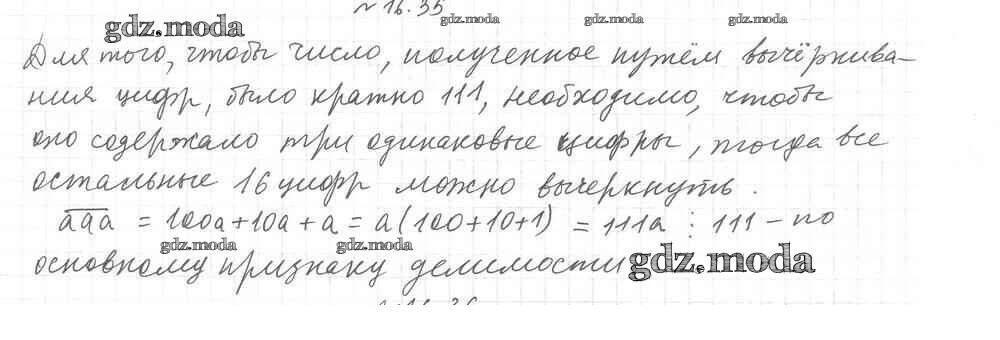 № 16.35
gdz.moda gdz.moda gdz.moda
Для того, чтобы число, полученное путём вычёркива-
ния цифр, было кратно 111, необходимо, чтобы
оно содержало три одинаковые цифры, тогда все
остальные 16 цифр можно вычеркнуть.
aaa = 100a + 10a + a = a(100+10+1) = 111a ⋮ 111 – по
gdz.moda gdz.moda
основному признаку делимости gdz.moda